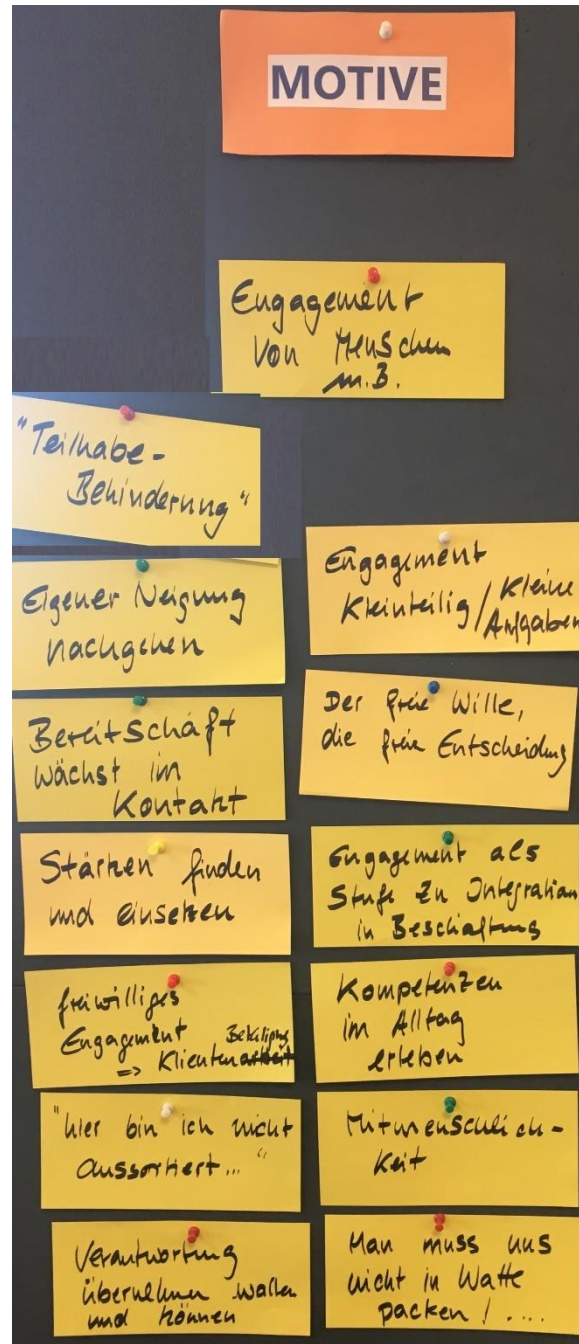 MOTIVE
Engagement
von Menschen
m.B.
"Teilhabe-
Behinderung"
Eigener Neigung
nachgehen
Bereitschaft
wächst im
Kontakt
Stärken finden
und einsetzen
freiwilliges
Engagement Beteiligung
=> Klientenarbeit
"hier bin ich nicht
aussortiert..."
Verantwortung
übernehmen wollen
und können
Engagement
Kleinteilig / Kleine
Aufgaben
Der freie Wille,
die freie Entscheidung
Engagement als
Stufe zu Integration
in Beschäftung
Kompetenzen
im Alltag
erleben
Mitmenschlich-
keit
Man muss uns
nicht in Watte
packen! ....